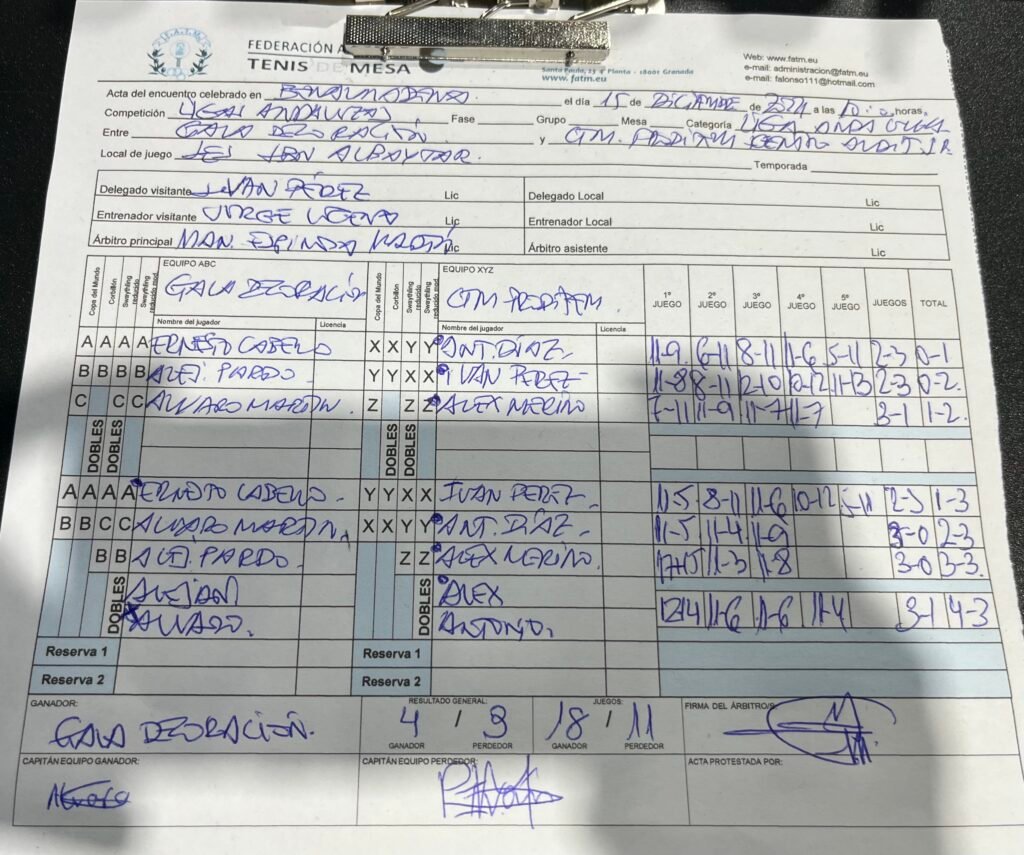 F.A.T.M.
FEDERACIÓN A
TENIS DE MESA
Santa Paula, 23 2ª Planta - 18001 Granada
www.fatm.eu
Web: www.fatm.eu
e-mail: administracion@fatm.eu
e-mail: falonso111@hotmail.com
Acta del encuentro celebrado en BENALMADENA el día 15 de DICIEMBRE de 2024 a las 10:0 horas.
Competición LIGAS ANDALUZAS Fase Grupo Mesa Categoría LIGA ANDALUZA
Entre GALA DECORACIÓN y CTM. PRODITEM
Local de juego IES IBN ALBAYTAR. Temporada
Delegado visitante IVAN PÉREZ Lic Delegado Local Lic
Entrenador visitante JORGE Lic Entrenador Local Lic
Árbitro principal MAN. ESPINOSA Lic Árbitro asistente Lic
Copa del Mundo Corbillón Swaythling reducido Swaythling reducido mod. EQUIPO ABC GALA DECORACIÓN Copa del Mundo Corbillón Swaythling reducido Swaythling reducido mod. EQUIPO XYZ CTM PRODITEM 1º JUEGO 2º JUEGO 3º JUEGO 4º JUEGO 5º JUEGO JUEGOS TOTAL
Nombre del jugador Licencia Nombre del jugador Licencia
A A A A ERNESTO CABELLO X X Y Y ANT. DÍAZ 11-9 6-11 8-11 11-6 5-11 2-3 0-1
B B B B ALEJ. PARDO Y Y X X IVAN PEREZ 11-8 8-11 12-10 10-12 11-13 2-3 0-2.
C C C ALVARO MARTÍN. Z Z Z ALEX MERINO 7-11 11-9 11-7 11-7 3-1 1-2.
DOBLES DOBLES DOBLES DOBLES
A A A A ERNESTO CABELLO. Y Y X X IVAN PEREZ 11-5 8-11 11-6 10-12 5-11 2-3 1-3
B B C C ALVARO MARTÍN. X X Y Y ANT. DÍAZ 11-5 11-4 11-9 3-0 2-3
B B ALEJ. PARDO. Z Z ALEX MERINO. 17-15 11-3 11-8 3-0 3-3.
DOBLES ALEJAN DOBLES ALEX
ALVARO. ANTONIO. 12-14 11-6 11-6 11-4 3-1 4-3
Reserva 1 Reserva 1
Reserva 2 Reserva 2
GANADOR: RESULTADO GENERAL: JUEGOS: FIRMA DEL ÁRBITRO/S
GALA DECORACIÓN. 4 / 3 18 / 11
GANADOR PERDEDOR GANADOR PERDEDOR
CAPITÁN EQUIPO GANADOR: CAPITÁN EQUIPO PERDEDOR: ACTA PROTESTADA POR: